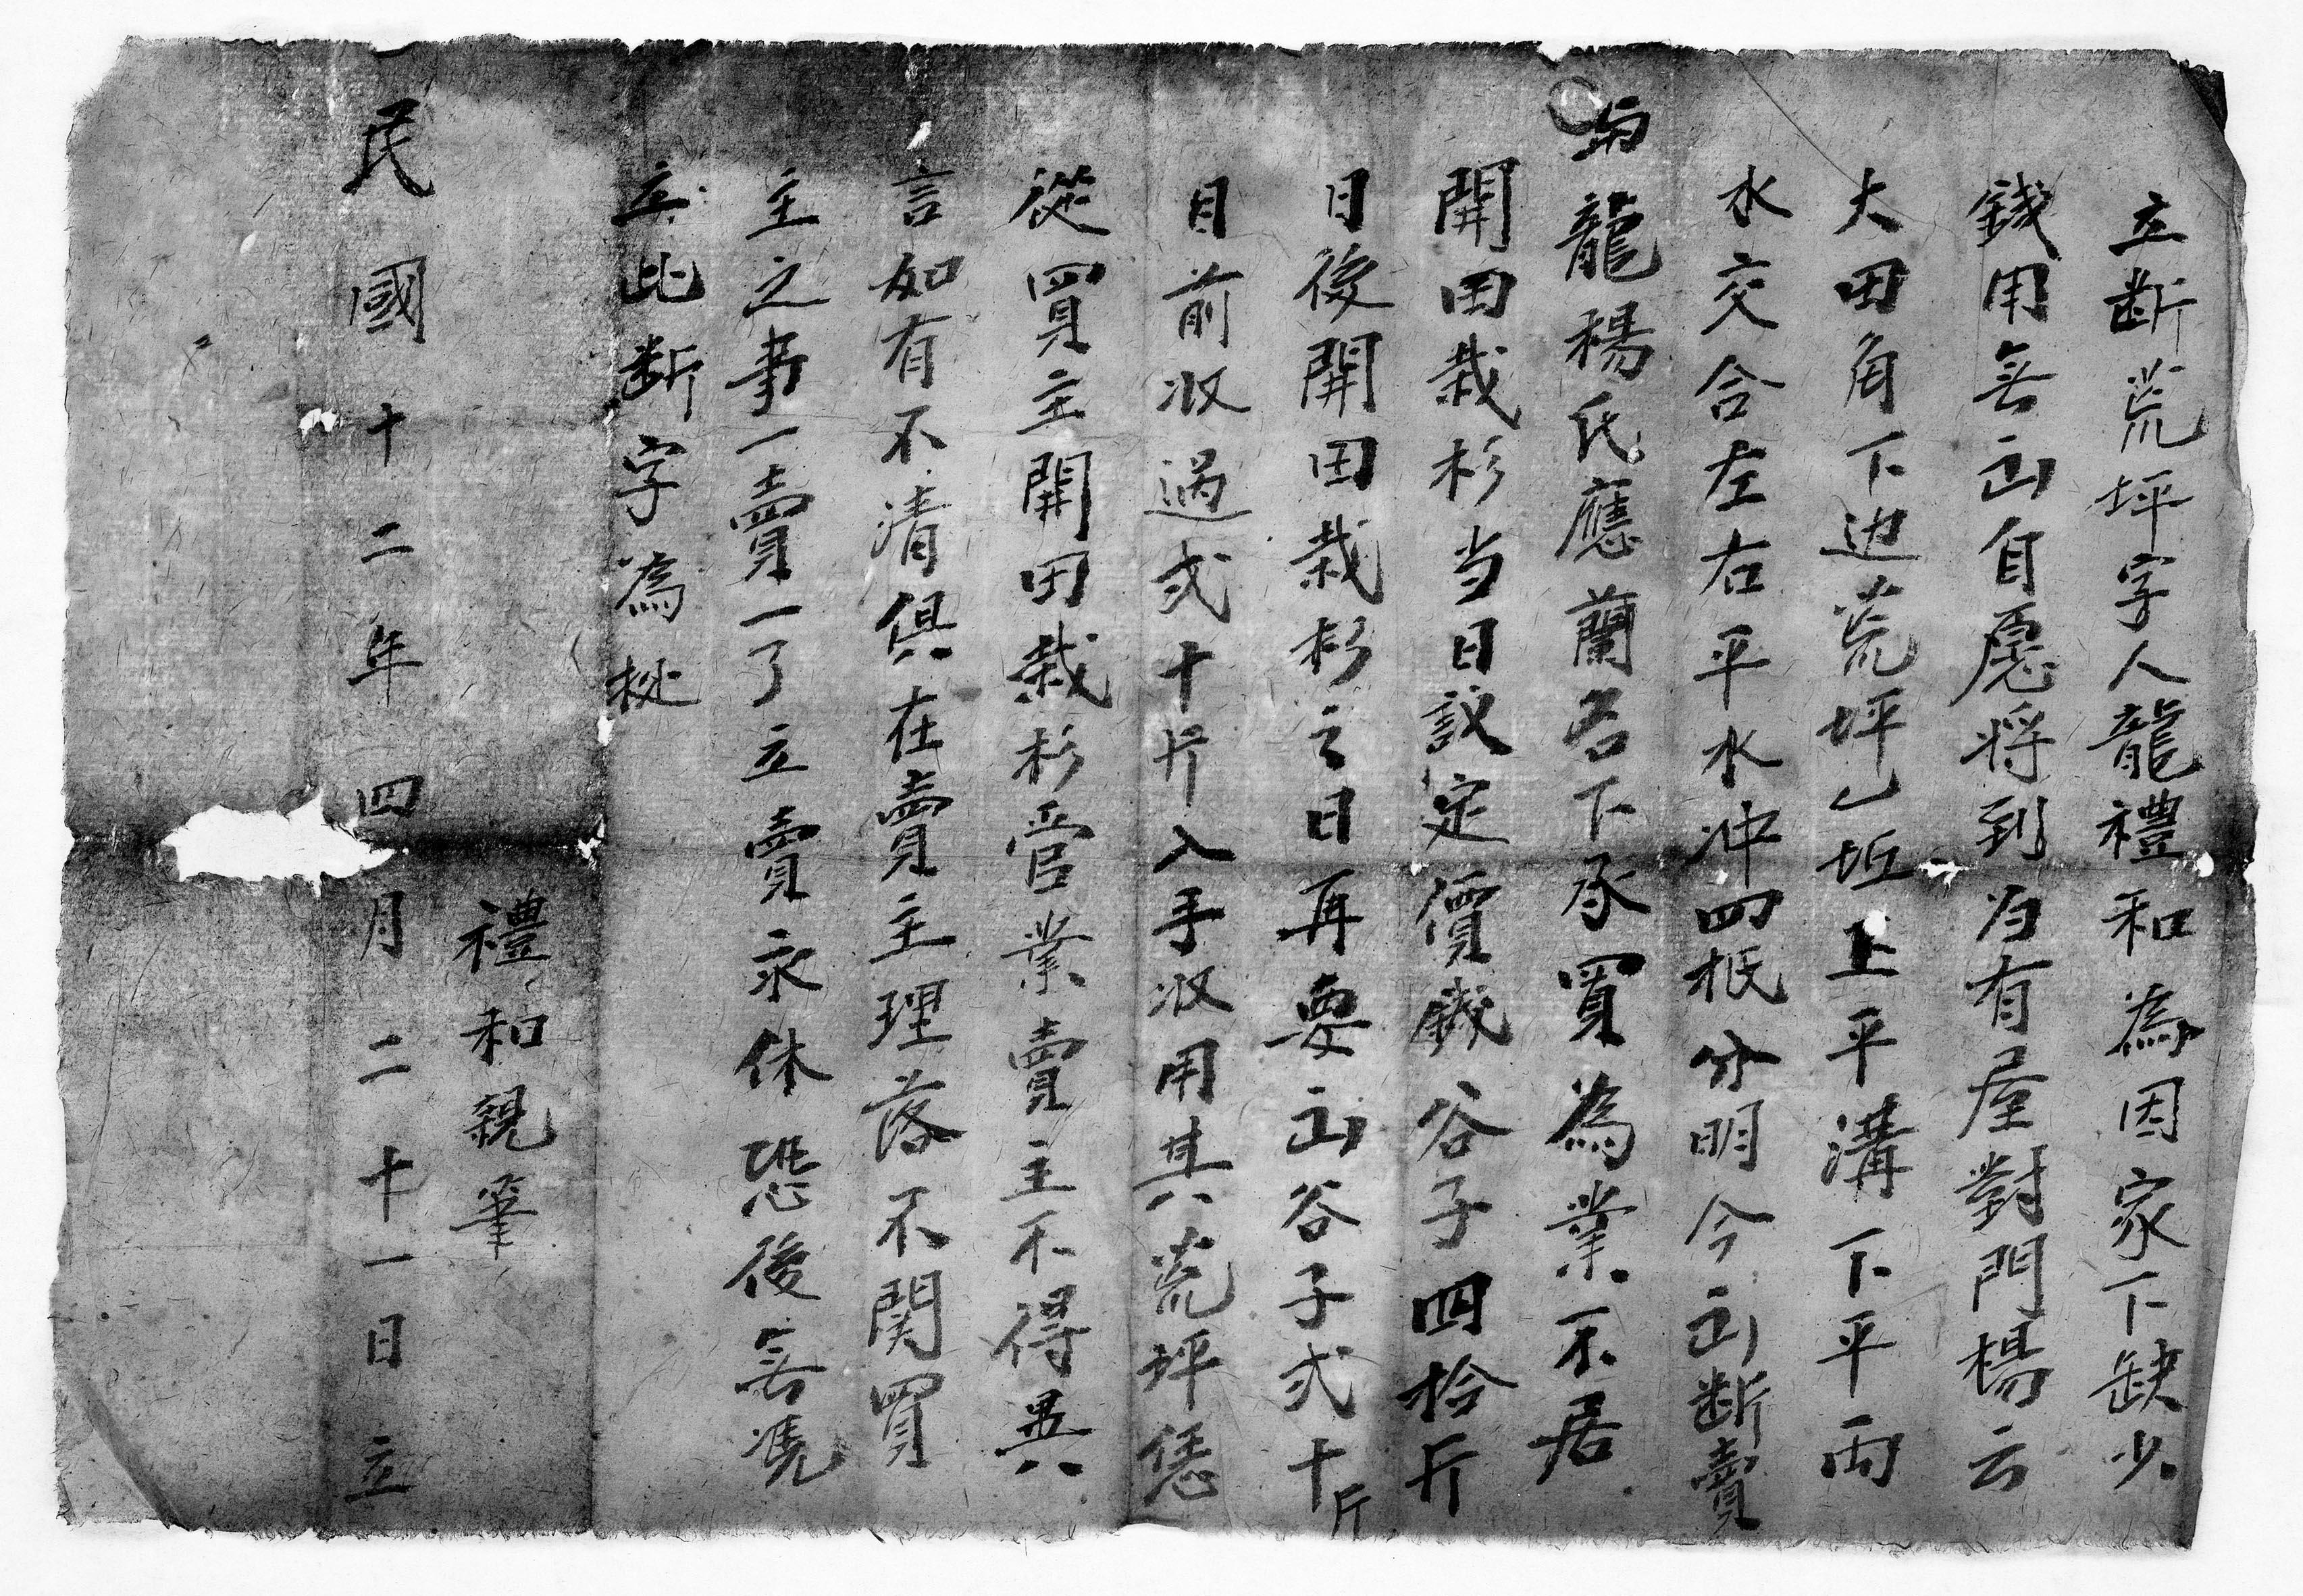 立断荒坪字人龍禮和為因家下缺少
錢用無出自愿将到为有屋對門楊云
大田角下边荒坪乙坵上平溝下平両
水交合左右平水冲四抵分明今出断賣
與龍楊氏應蘭名下承買為業不居
開田栽杉当日議定價錢谷子四拾斤
日後開田栽杉之日再要出谷子弍十斤
目前收過弍十斤入手收用其荒坪恁
從買主開田栽杉管業賣主不得異
言如有不清俱在賣主理落不関買
主之事一賣一了立賣永休恐後無凭
立此断字為挩
禮和親筆
民國十二年四月二十一日立